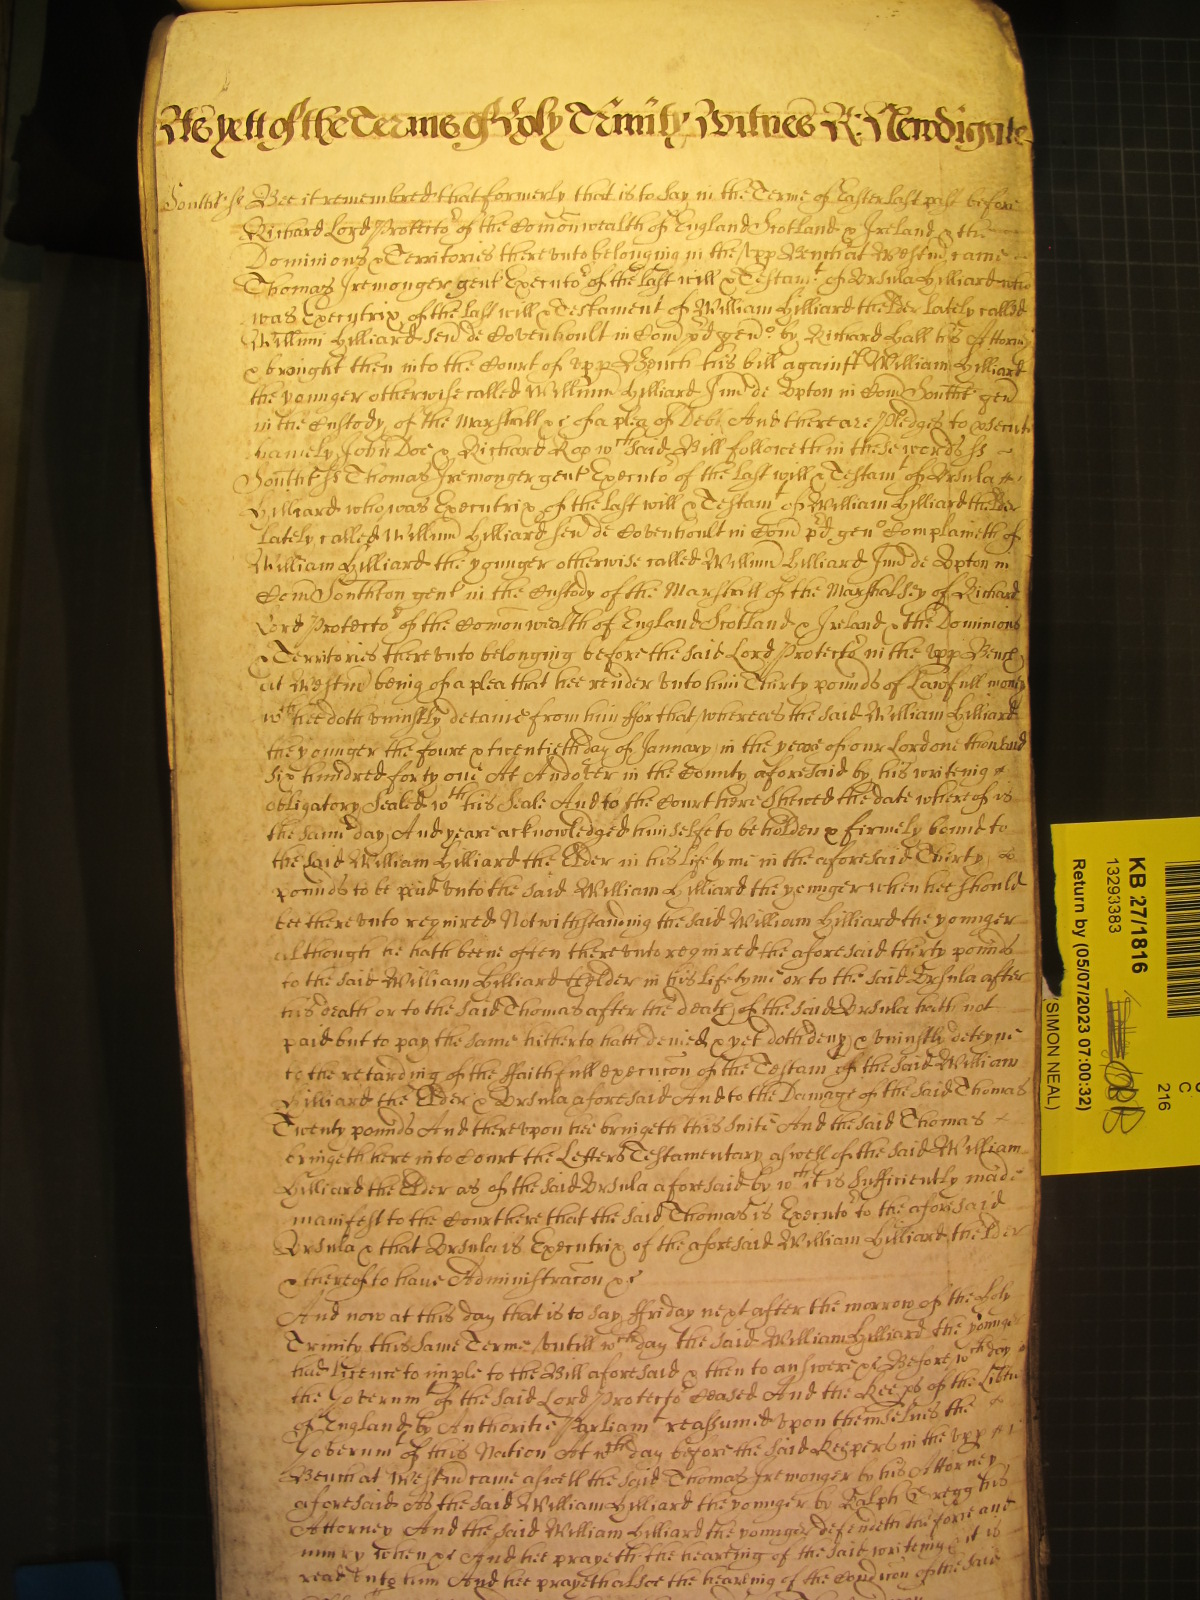 As yett of the Terme of Holy Trinity Witnes R: Newdigate
Southt ss Bee it remembred that formerly that is to say in the Terme of Easter last past before
Richard Lord Protector of the Comonwealth of England Scotland & Ireland & the
Dominions & Territories thereunto belonging in the upp Bench at Westm came
Thomas Iremonger gent Executor of the last will & Testamt of Ursula Hilliard who
was Executrix of the last will & Testament of William Hilliard the elder lately called
Willmi Hilliard Sen de Covenhoult in Com pd geno by Richard Hall his Attorny
& brought then into the Court of upp Bench his bill against William Hilliard
the younger otherwise called Willmi Hilliard Jun de Upton in Com Southt gen
in the Custody of the Marshall &c of a plea of Debt And there are Pledges to psecute
namely John Doe & Richard Roo wch said Bill followeth in these words ss
Southt ss Thomas Iremonger gent Executor of the last will & Testamt of Ursula
Hilliard who was Executrix of the last will & Testamt of William Hilliard the elder
lately called Willmi Hilliard Sen de Covenhoult in Com pd geno Complaineth of
William Hilliard the younger otherwise called Willmi Hilliard Jun de Upton in
Com Southton gent in the Custody of the Marshall of the Marshalsey of Richard
Lord Protector of the Comonwealth of England Scotland & Ireland & the Dominions
& Territories thereunto belonging before the said Lord Protector in the upp Bench
at Westm being of a plea that hee render unto him Thirty pounds of Lawfull mony
wch hee doth uniustly detaine from him ffor that whereas the said William Hilliard
the younger the foure & twentieth day of January in the yeare of our Lord one thousand
six hundred forty one At Andover in the County aforesaid by his writeing
obligatory Sealed wth his Seale And to the Court here Shewed the date whereof is
the same day And yeare acknowledged himselfe to be holden & firmely bound to
the said William Hilliard the Elder in his life tyme in the aforesaid Thirty
pounds to be paid unto the said William Hilliard the younger when hee should
bee thereunto required Notwithstanding the said William Hilliard the younger
although he hath beene often thereunto required the aforesaid thirty pounds
to the said William Hilliard the elder in his life tyme or to the said Ursula after
his death or to the said Thomas after the death of the said Ursula hath not
paid but to pay the same hitherto hath denied & yet doth deny & uniustly deteyne
to the retarding of the ffaithfull execucon of the Testam of the said William
Hilliard the Elder & Ursula aforesaid And to the Damage of the said Thomas
Twenty pounds And thereupon hee bringeth this suite And the said Thomas
bringeth here into Court the Letters Testamentary aswell of the said William
Hilliard the Elder as of the said Ursula aforesaid by wch it is sufficiently made
manifest to the Court here that the said Thomas is Executor to the aforesaid
Ursula & that Ursula is Executrix of the aforesaid William Hilliard the Elder
& thereof to have Administracon &c
And now at this day that is to say ffriday next after the morrow of the Holy
Trinity this same Terme untill wch day the said William Hilliard the younger
had licence to imple to the Bill aforesaid & then to answere &c Before wch day
the Governmt of the said Lord Protector Ceased And the Keeps of the Libtie
of England by Authoritie Parliamt reassumed upon themselves the
Governmt of this Nation At wch day before the said Keepers in the upp
Bench at Westm came aswell the said Thomas Iremonger by his Attorney
aforesaid As the said William Hilliard the younger by Ralph Gregg his
Attorney And the said William Hilliard the younger defendeth the force and
iniury when &c And hee prayeth the hearing of the said writeing & it is
read unto him And hee prayeth alsoe the heareing of the Condicon of the said
KB 27/1816
13293383
Return by (05/07/2023 07:00:32)
(SIMON NEAL)
C
216